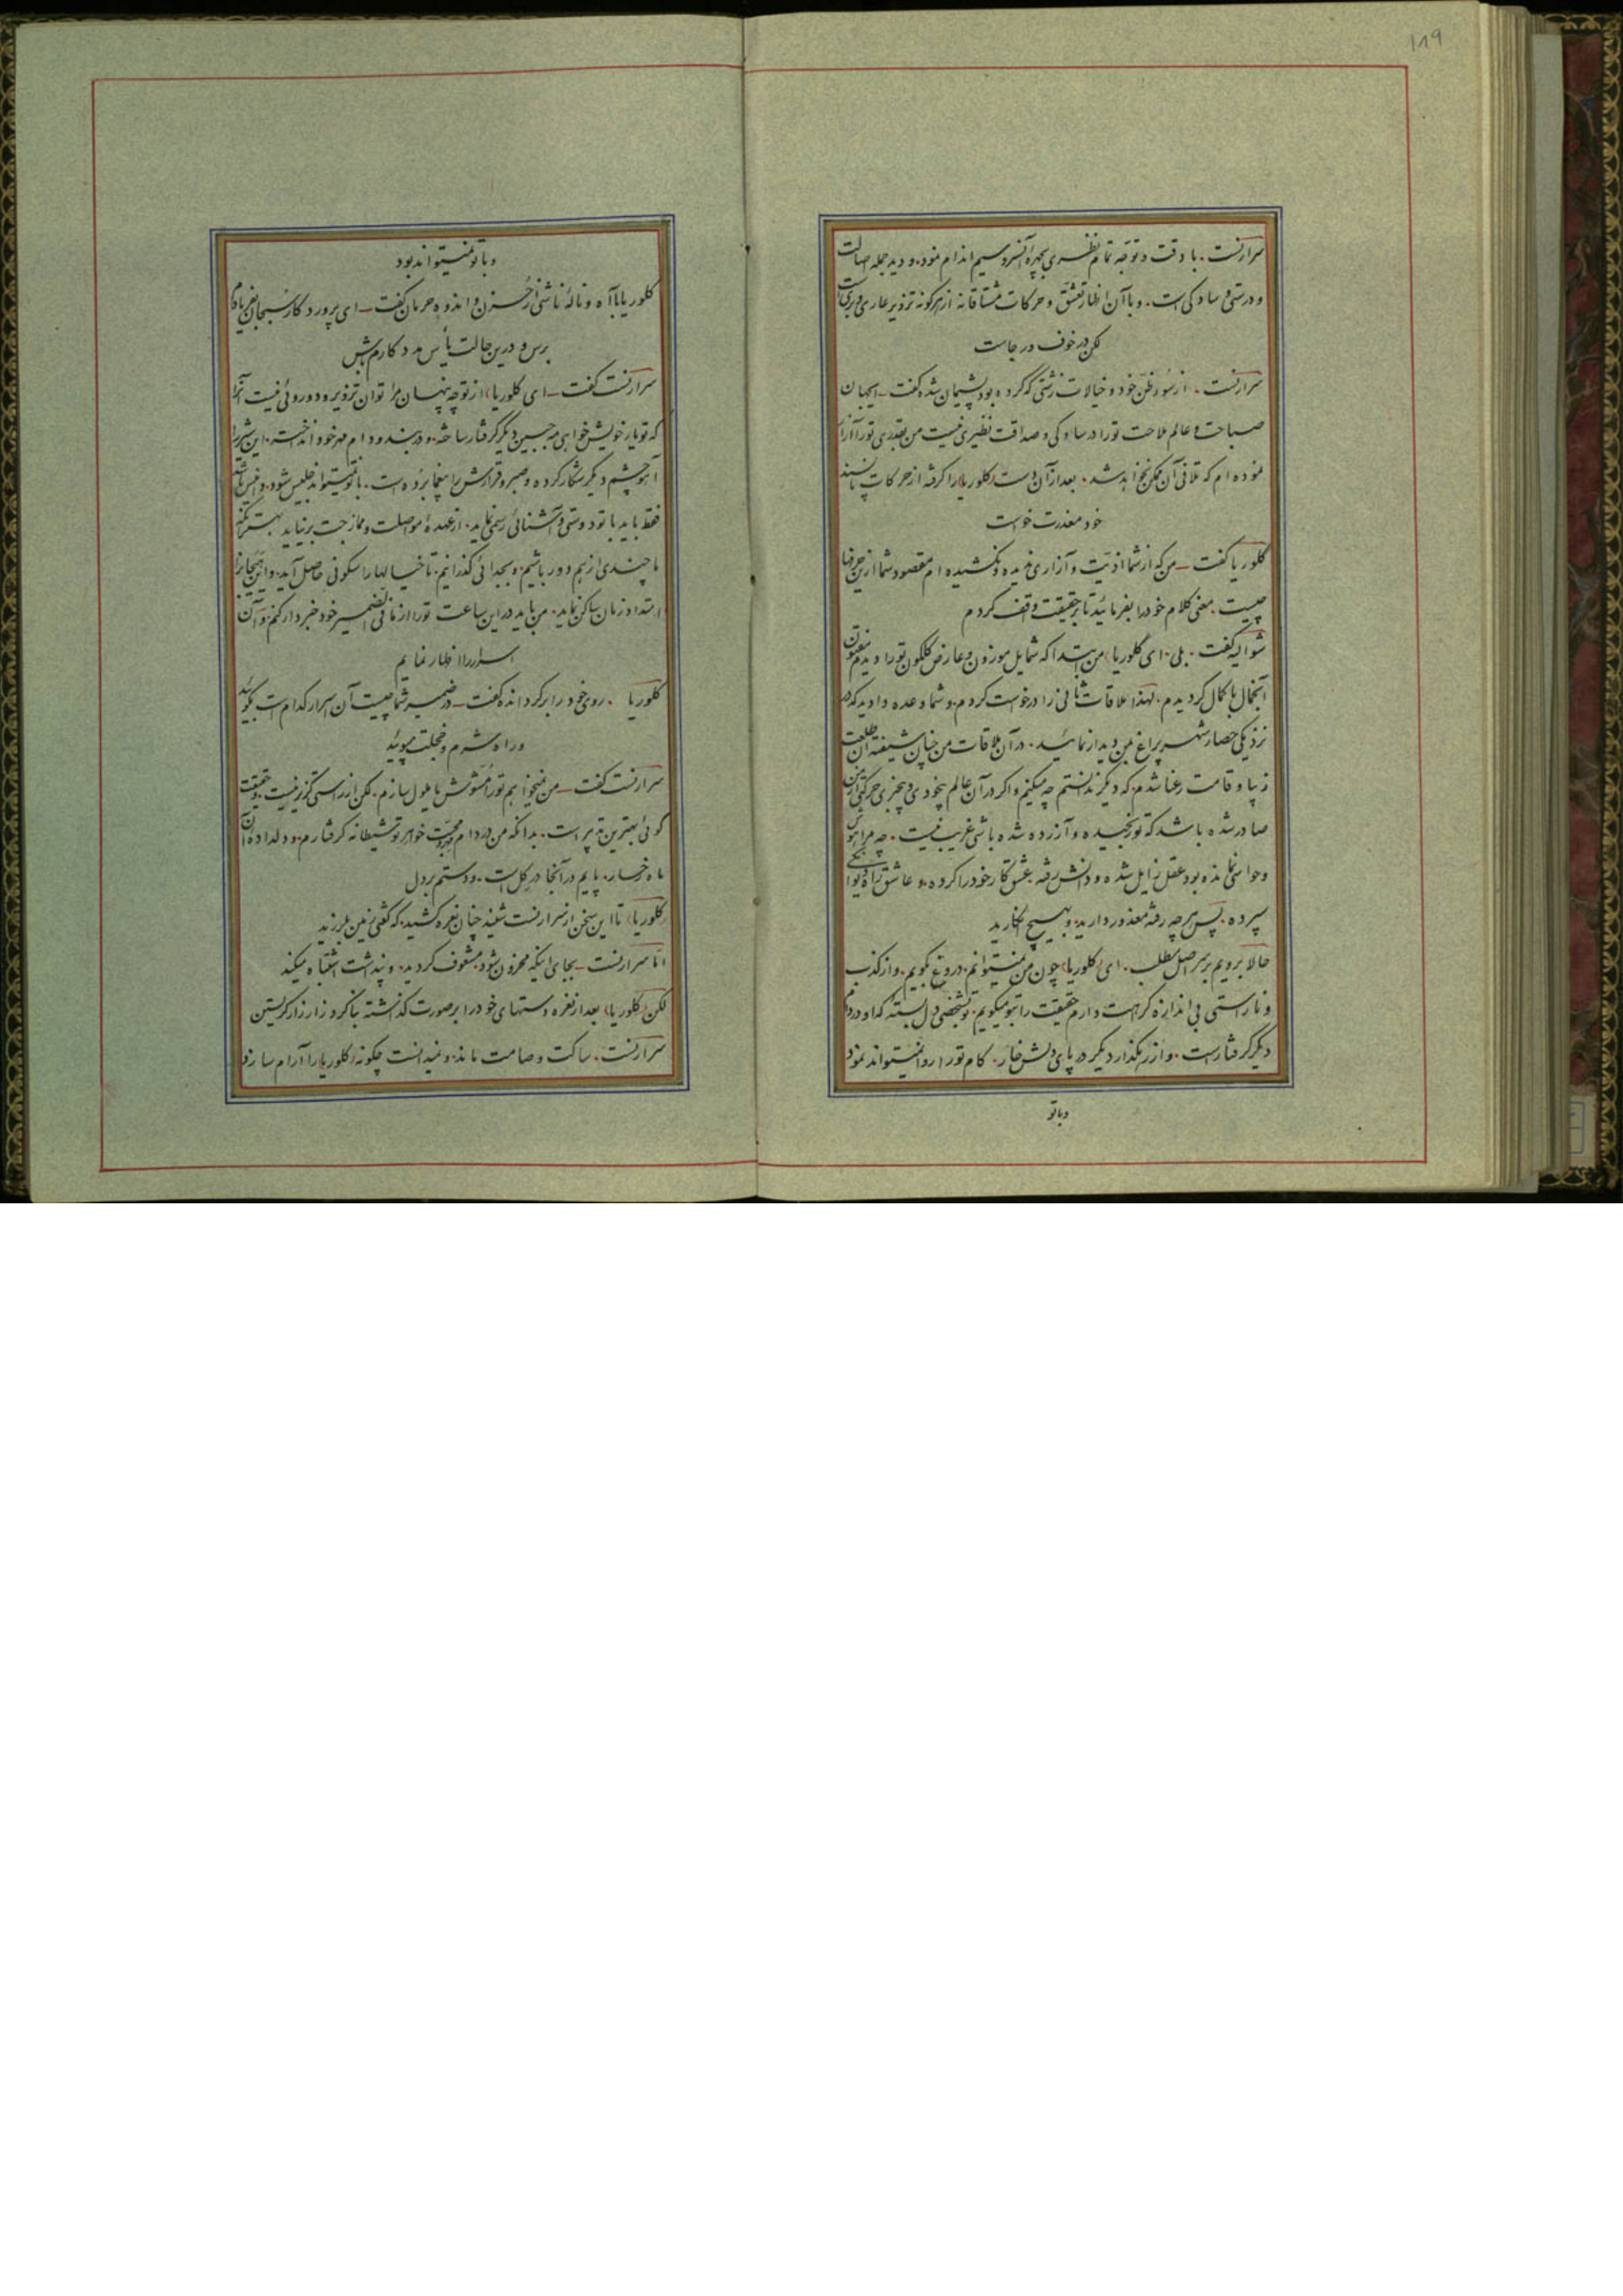 ۱۸۹
سرارنست . با دقت و توجه تمام نظری بچهره آنسرو سیم اندام نمود . و دید جمله اصالت
و درستی و سادگی است . و با آن اظهار تعشق و حرکات مشتاقانه از هرگونه تزویر عاری و بری است
لکن در خوف و رجاست
سرارنست . از سوء ظن خود و خیالات زشتی که کرده بود پشیمان شده گفت ـ ایجهان
صباحت و عالم ملاحت تو را در سادگی و صداقت نظیری نیست من بقدری تو را آزار
نموده ام که تلافی آن ممکن نخواهد شد . بعد از آن دست (کلوریا) را گرفته از حرکات ناپسند
خود معذرت خواست
کلوریا گفت ـ من که از شما اذیت و آزاری ندیده و نکشیده ام مقصود شما ازین حرفها
چیست . معنی کلام خود را بفرمائید تا بر حقیقت واقف گردم
شوالیه گفت . بلی . ای (کلوریا) من ابتدا که شمایل موزون و عارض گلگون تو را دیدم مفتون
آنجمال با کمال گردیدم . لهذا ملاقات ثانی را درخواست کردم و شما وعده دادید که در
نزدیکی حصار شهر پراغ بمن دیدار نمائید . در آن ملاقات من چنان شیفته آن طلعت
زیبا و قامت رعنا شدم که دیگر ندانستم چه میکنم و اگر در آن عالم بیخودی و بیخبری حرکتی از من
صادر شده باشد که تو رنجیده و آزرده شده باشی غریب نیست . چه مرا هوش
و حواسی نمانده بود عقل زایل شده و دانش رفته . عشق کار خود را کرده و عاشق را بدیوانگی
سپرده . پس هر چه رفته معذور دارید و بهیچ انگارید
حالا برویم بر سر اصل مطلب . ای (کلوریا) چون من نمیتوانم دروغ بگویم . و از کذب
و ناراستی بی اندازه کراهت دارم حقیقت را بتو میگویم . تو بشخصی دل بسته که او در دام
دیگر گرفتار است . و از رهگذار دیگر در پای دلش خار . کام تو را روا نمیتواند نمود
و با تو
و با تو نمیتواند بود
کلوریا با آه و ناله ناشی از حزن و اندوه و حرمان گفت ـ ای پروردگار سبحان بفریادم
برس و درین حالت یأس مددکارم باش
سرارنست گفت ـ ای (کلوریا) از تو چه پنهان مرا توان تزویر و دو روئی نیست آنرا
که تو یار خویش خواهی مه جبین دیگر گرفتار ساخته . و در بند و دام مهر خود انداخته . این شیر را
آهو چشم دیگر شکار کرده و صبر و قرارش را بیغما برده است . با تو نمیتواند جلیس شود . و انیس باشد
فقط باید با تو دوستی و آشنائی رسمی نماید . از عهده مواصلت و ممازجت برنیاید بهتر آنکه
ما چندی از هم دور باشیم و بجدائی گذرانیم . تا خیالها را سکونی حاصل آید . و این هیجان را
امتداد زمان ساکن نماید . من باید در این ساعت تو را از مافی الضمیر خود خبردار کنم . و آن
اسرار را اظهار نمایم
کلوریا . روی خود را برگردانده گفت ـ در ضمیر شما چیست آن اسرار کدام است بگوئید
و راه شرم و خجلت مپوئید
سرارنست گفت ـ من نمیخواهم تو را مشوش یا ملول سازم . لکن از راستی گزیر نیست . و حقیقت
گوئی بهترین تدبیر است . بدانکه من در دام محبت خواهر تو شیطانه گرفتارم . و دلداده آن
ماه رخسار . پایم در آنجا در گل است . و دستم بر دل
(کلوریا) تا این سخن از سرارنست شنید چنان نعره کشید . که گفتی زمین بلرزید
اما سرارنست ـ بجای اینکه محزون شود . مشعوف گردید . و پنداشت اشتباه میکند
لکن (کلوریا) بعد از نعره دستهای خود را بر صورت گذاشته بنا کرد زار زار گریستن
سرارنست . ساکت و صامت ماند . و نمیدانست چگونه (کلوریا) را آرام سازد